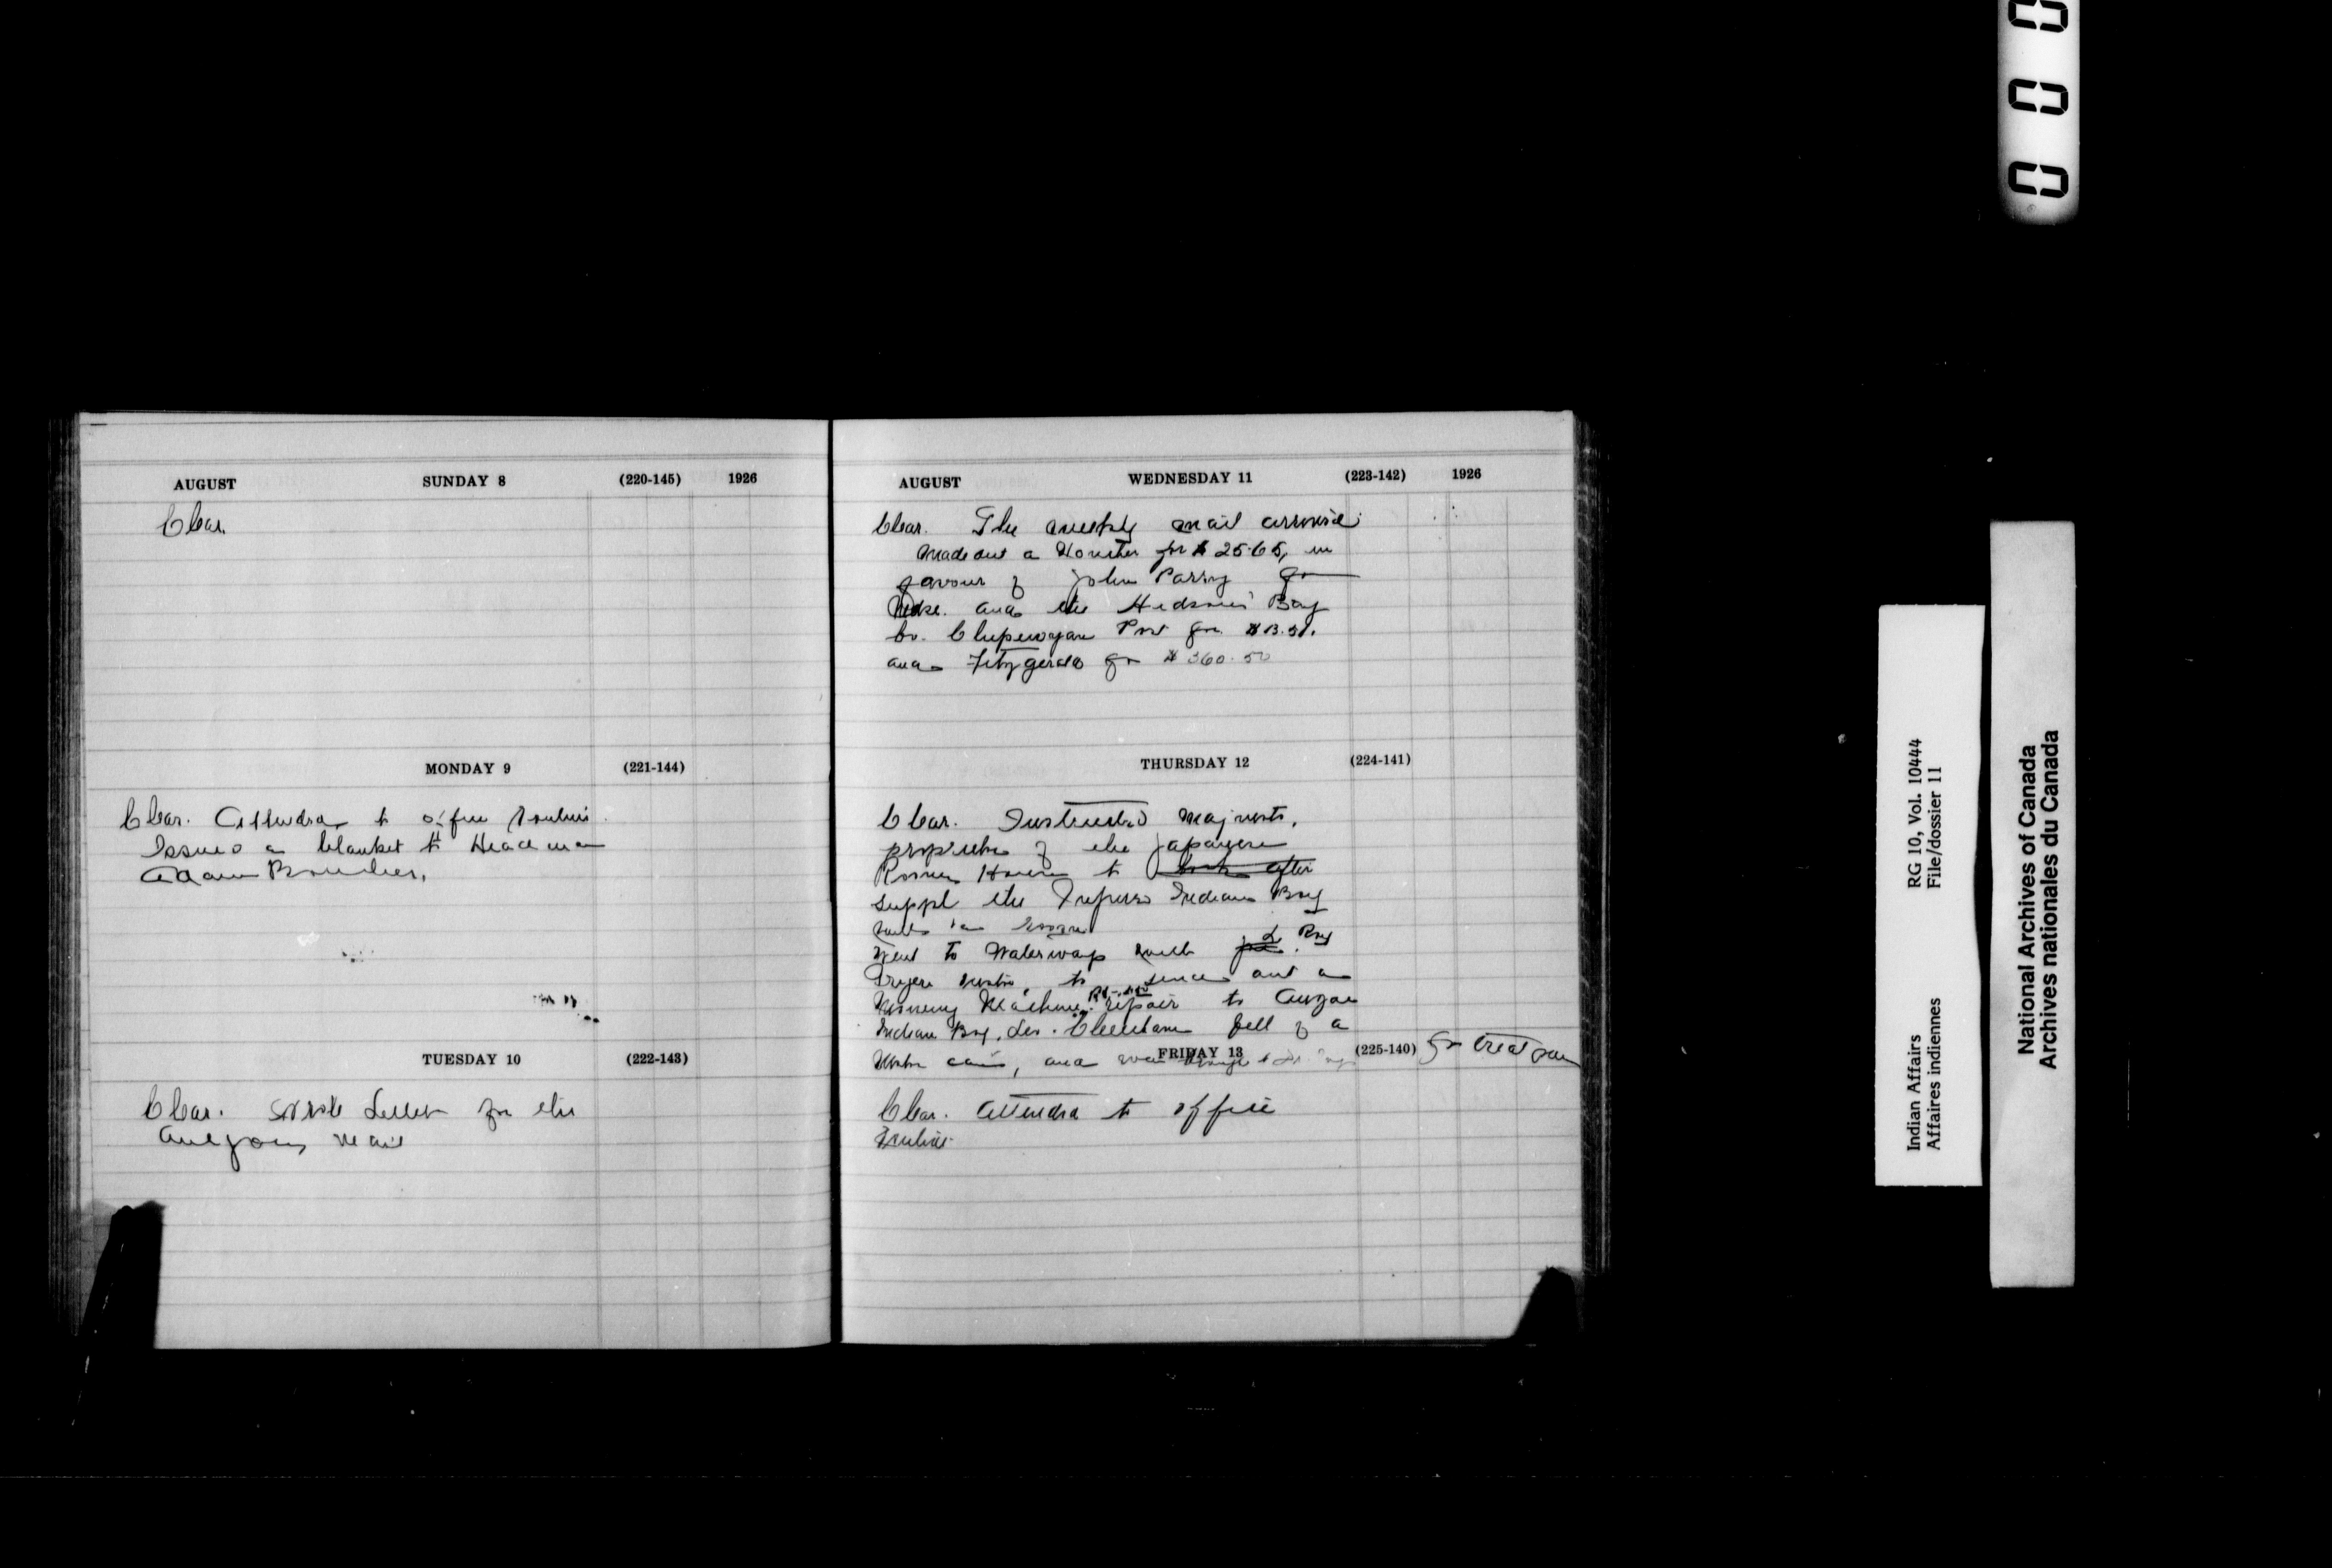 AUGUST SUNDAY 8 (220-145) 1926
Clear.
MONDAY 9 (221-144)
Clear. Attended to office routine.
Issued a blanket to Headman
Adam Boucher.
TUESDAY 10 (222-143)
Clear. Wrote Letters for the
outgoing mail
AUGUST WEDNESDAY 11 (223-142) 1926
Clear. The weekly mail arrived.
Made out a Voucher for $25.65, in
favour of John Parry for
Mdse. and the Hudson's Bay
Co. Chipewyan Post for
and Fitzgerald for $360.50
THURSDAY 12 (224-141)
Clear. Instructed
proprietor of the Japanese
Rooming House to look after
suppl the Indian Boy
Went to Waterways with
to send out a
repair to
Indian Boy. fell of a
and was for treatm
FRIDAY 13 (225-140)
Clear. Attended to office
Routine.
0 0 0
Indian Affairs RG 10, Vol. 10444
Affaires indiennes File/dossier 11
National Archives of Canada
Archives nationales du Canada